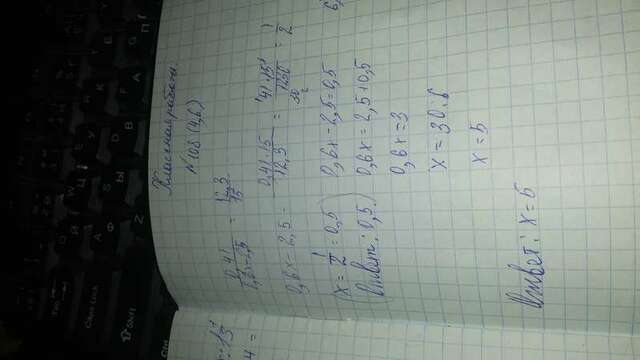 Tab
Caps Lock
Shift
Ctrl
Й
Ц
У
Ф
Ы
В
А
Z
Классная работа.
№108 (4,6)
0,41/0,6x-2,5 = 12,3/15
0,6x-2,5 = 0,41·15/12,3 = 41·15/1230 = 1/2
(x = 1/2 = 0,5)
Ответ: 0,5.
0,6x-2,5=0,5
0,6x=2,5+0,5
0,6x=3
x=30:6
x=5
Ответ: x=5